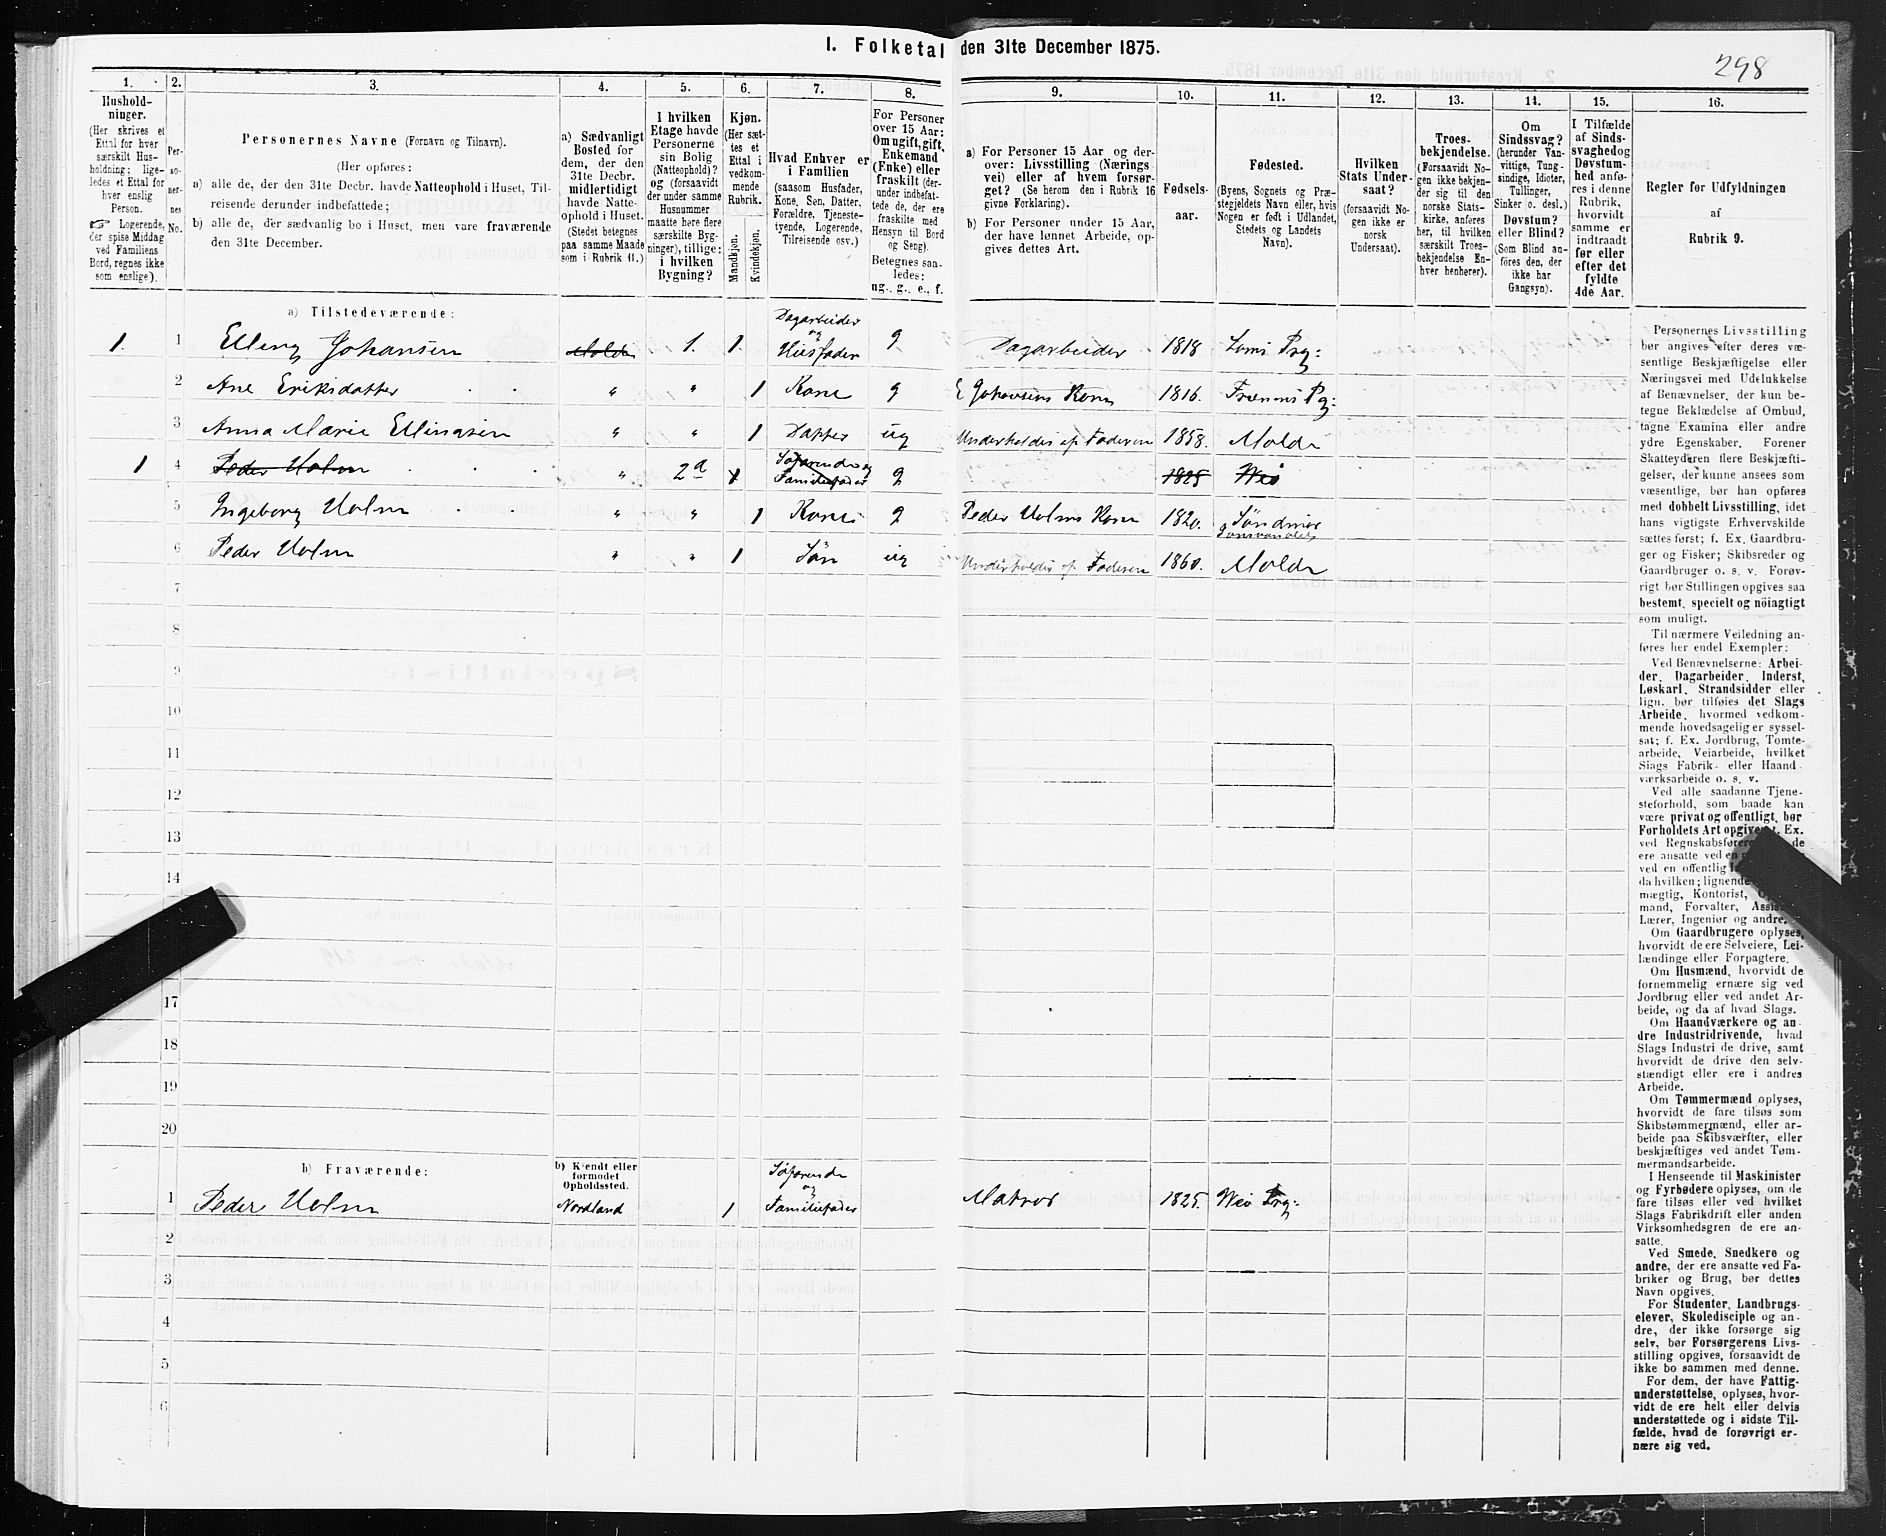 1. Folketal den 31te December 1875.
298
1.
2.
3.
4.
5.
6.
7.
8.
9.
10.
11.
12.
13.
14.
15.
16.
Hushold-
ninger.
(Her skrives et
Ettal for hver
særskilt Hus-
holdning; lige-
ledes et Ettal for
hver enslig
Person.
☞ Logerende,
der spise Middag
ved Familiens
Bord, regnes ikke
som enslige).
Per-
so-
ner-
nes
No.
Personernes Navne (Fornavn og Tilnavn).
(Her opføres:
a) alle de, der den 31te Decbr. havde Natteophold i Huset, Til-
reisende derunder indbefattede;
b) alle de, der sædvanlig bo i Huset, men vare fraværende
den 31te December.
a) Sædvanligt
Bosted for
dem, der den
31te Decbr.
midlertidigt
havde Natte-
ophold i Huset.
(Stedet betegnes
paa samme Maade
som i Rubrik 11.)
I hvilken
Etage havde
Personerne
sin Bolig
(Natteophold)?
og (forsaavidt
der under samme
Husnummer
maatte høre flere
særskilte Byg-
ninger), tillige:
i hvilken
Bygning?
Kjøn.
(Her sæt-
tes et
Ettal i
vedkom-
mende
Rubrik.
Mandkjøn.
Kvindekjøn.
Hvad Enhver er
i Familien
(saasom Husfader,
Kone, Søn, Datter,
Forældre, Tjeneste-
tyende, Logerende,
Tilreisende osv.)
For Personer
over 15 Aar:
Om ugift, gift,
Enkemand
(Enke) eller
fraskilt (der-
under indbefat-
tede de, der ere
fraskilte med
Hensyn til Bord
og Seng).
Betegnes saa-
ledes:
ug., g., e., f.
a) For Personer 15 Aar og der-
over: Livsstilling (Nærings
vei) eller af hvem forsør-
get? (Se herom den i Rubrik 16
givne Forklaring).
b) For Personer under 15 Aar,
der have lønnet Arbeide, op-
gives dettes Art.
Fødsels-
aar.
Fødested.
(Byens, Sognets og Præ-
stegjeldets Navn eller, hvis
Nogen er født i Udlandet,
Stedets og Landets
Navn).
Hvilken
Stats Under-
saat?
(forsaavidt No-
gen ikke er
norsk
Undersaat).
Troes-
bekjendelse.
(Forsaavidt No-
gen ikke bekjen-
der sig til den
norske Stats-
kirke, anføres
her, til hvilken
særskilt Troes-
bekjendelse En-
hver henhører).
Om
Sindssvag?
(herunder Van-
vittige, Tung-
sindige, Idioter,
Tullinger,
Sinker o. desl.)
Døvstum?
eller Blind?
(Som Blind an-
føres den, der
ikke har
Gangsyn).
I Tilfælde
af Sinds-
svaghed og
Døvstum-
hed anfø-
res i denne
Rubrik,
hvorvidt
samme er
indtraadt
før eller
efter det
fyldte
4de Aar.
Regler for Udfyldningen
af
Rubrik 9.
a) Tilstedeværende:
1. 1 Elling Johansen Molde 1. 1. Dagarbeider og Husfader g Dagarbeider 1818 Loms Prg:
2 Ane Eriksdatter " " 1 Kone g E Johansens Kone 1816. Frænens Pg:
3 Anna Marie Ellingsen " " 1 Datter ug Underholdes af Faderen 1858. Molde
1 4 Peder Holm " 2a 1 Søfarende og Familiefader g 1825 Veø
5 Ingeborg Holm " " 1 Kone g Peder Holms Kone 1820. Søndmør
6 Peder Holm " " 1 Søn ug Underholdes af Faderen 1860. Molde
7
8
9
10
11
12
13
14
17
18
19
20
b) Fraværende:
b) Kjendt eller
formodet
Opholdssted.
1 Peder Holm Nordland 1 Søfarende og Familiefader Matros 1825. Veø Prg:
2
3
4
5
6
Personernes Livsstilling
bør angives efter deres væ-
sentlige Beskjæftigelse eller
Næringsvei med Udelukkelse
af Benævnelser, der kun be-
tegne Beklædelse af Ombud,
tagne Examina eller andre
ydre Egenskaber. Forener
Skatteyderen flere Beskjæfti-
gelser, der kunne ansees som
væsentlige, bør han opføres
med dobbelt Livsstilling, idet
hans vigtigste Erhvervskilde
sættes først; f. Ex. Gaardbru-
ger og Fisker; Skibsreder og
Gaardbruger o. s. v. Forøv-
rigt bør Stillingen opgives saa
bestemt, specielt og nøiagtigt
som muligt.
Til nærmere Veiledning an-
føres her endel Exempler:
Ved Benævnelserne: Arbei-
der, Dagarbeider, Inderst,
Løskarl, Strandsidder eller
lign. bør tilføies det Slags
Arbeide, hvormed vedkom-
mende hovedsagelig er syssel-
sat; f. Ex. Jordbrug, Tomte-
arbeide, Veiarbeide, hvilket
Slags Fabrik- eller Haand-
værksarbeide o. s. v.
Ved alle saadanne Tjene-
steforhold, som baade kan
være privat og offentligt, bør
Forholdets Art opgives, f. Ex.
ved Regnskabsfører de
ere ansatte ved en
ved en offentlig
da hvilken; lignende
mægtig, Kontorist,
mand, Forvalter,
Lærer, Ingeniør og andre.
Om Gaardbrugere oplyses,
hvorvidt de ere Selveiere, Lei-
lændinge eller Forpagtere.
Om Husmænd, hvorvidt de
fornemmelig ernære sig ved
Jordbrug eller ved andet Ar-
beide, og da af hvad Slags.
Om Haandværkere og an-
dre Industridrivende, hvad
Slags Industri de drive, samt
hvorvidt de drive den selv-
stændigt eller ere i andres
Arbeide.
Om Tømmermænd oplyses,
hvorvidt de fare tilsøs som
Skibstømmermænd, eller ar-
beide paa Skibsværfter, eller
beskjæftiges ved andet Tøm-
mermandsarbeide.
I Henseende til Maskinister
og Fyrbødere oplyses, om de
fare tilsøs eller ved hvilket
Slags Fabrikdrift eller anden
Virksomhedsgren de ere an-
satte.
Ved Smede, Snedkere og
andre, der ere ansatte ved Fa-
briker og Brug, bør dettes
Navn opgives.
For Studenter, Landbrugs-
elever, Skoledisciple og an-
dre, der ikke forsørge sig
selv, bør Forsørgerens Livs-
stilling opgives, forsaavidt de
ikke bo sammen med denne.
For dem, der have Fattig-
understøttelse, oplyses, hvor-
vidt de ere helt eller delvis
understøttede og i sidste Til-
fælde, hvad de forøvrigt er-
nære sig ved.